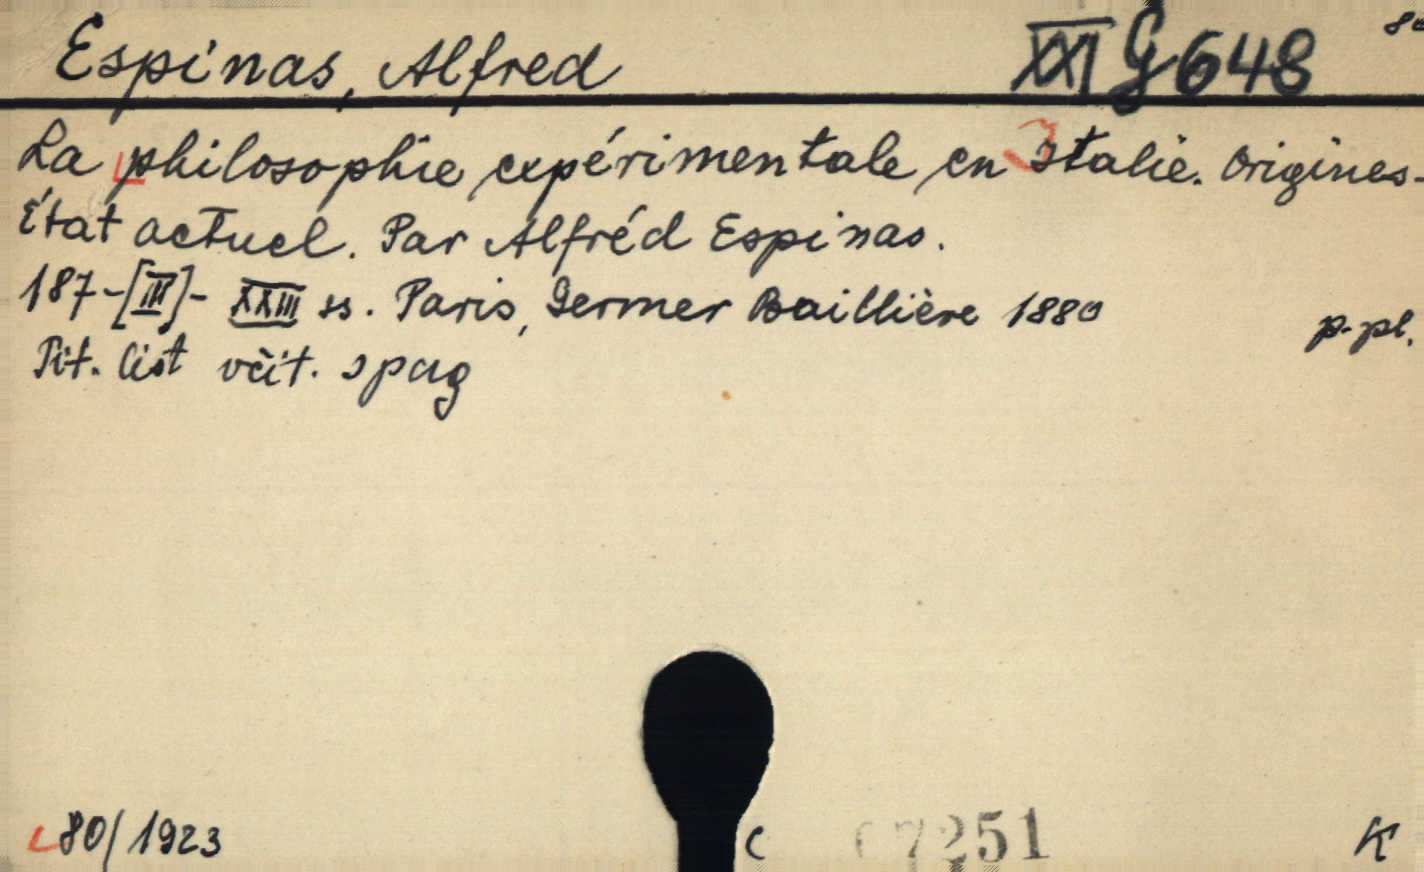 Espinas, Alfred XXI G 648
La philosophie expérimentale en Italie. Origines-
État actuel. Par Alfréd Espinas.
187-[III]-XXIII ss. Paris, Germer Baillière 1880 p.pl.
Tit. list včit. spag
80/1923 C 7251 K